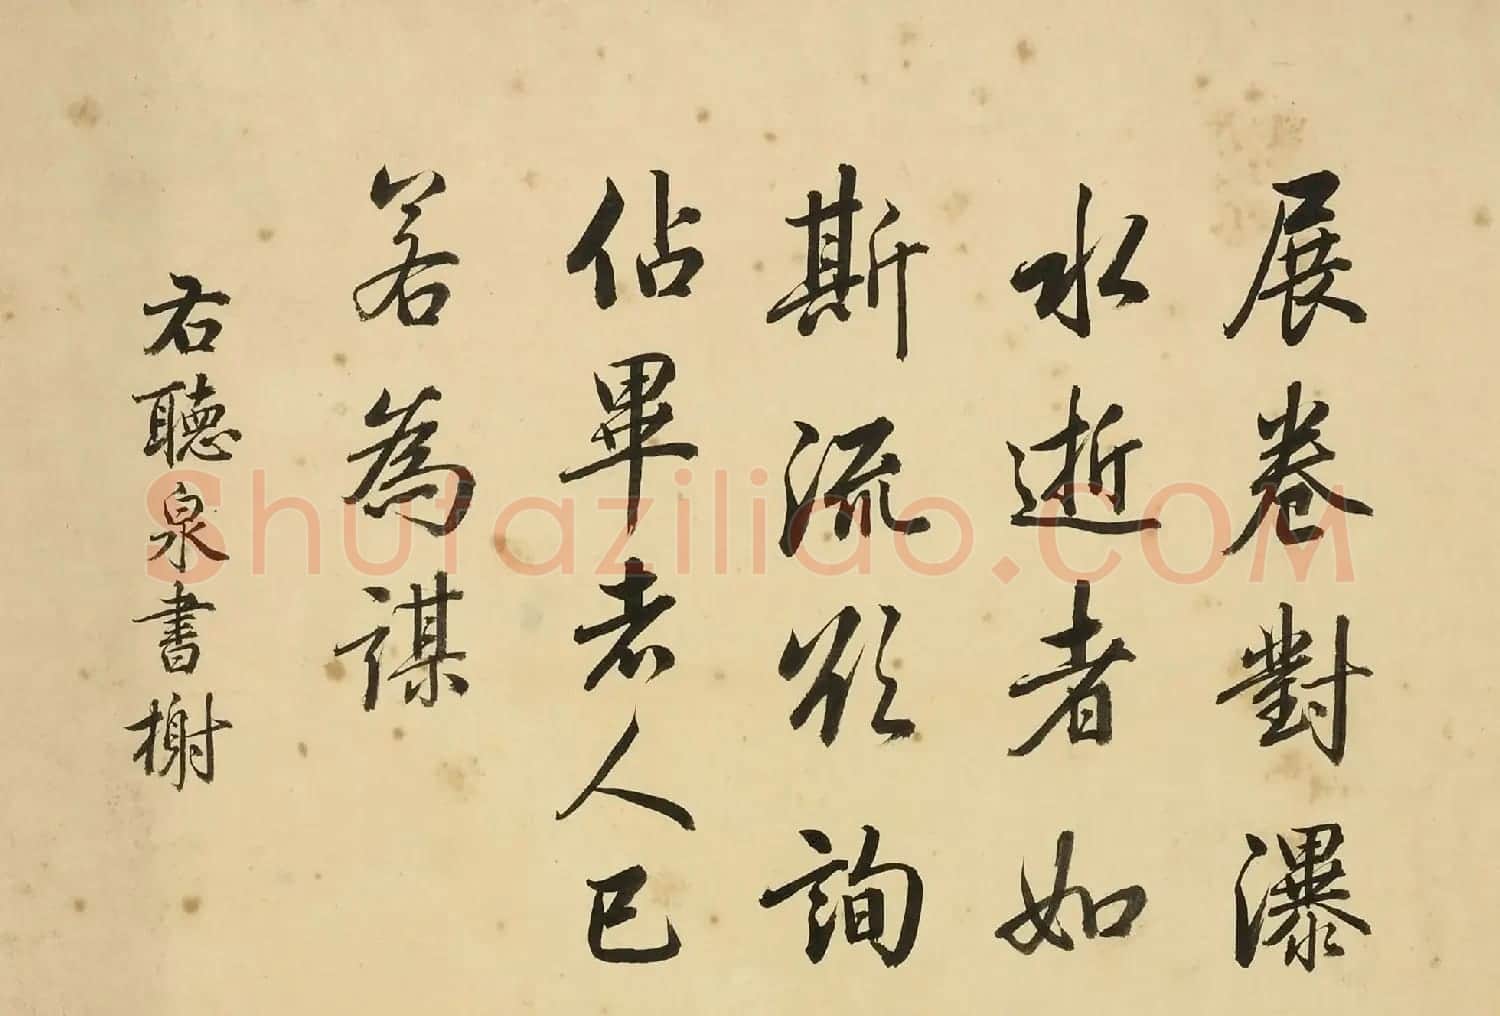 展卷對瀑
水逝者如
斯流欲詢
佔畢老人已
若為謀
右聽泉書榭
Shufaziliao.COM